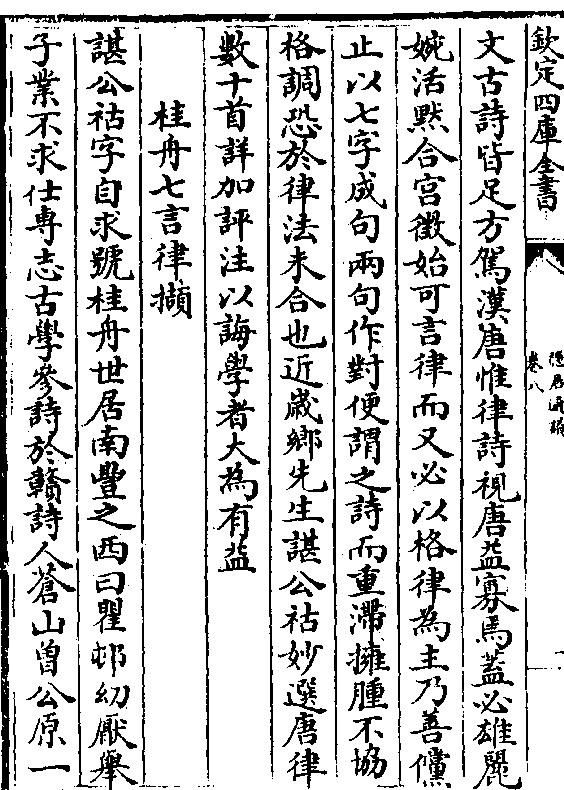 欽定四庫全書
隱居通議
卷八
文古詩皆足方駕漢唐惟律詩視唐益寡焉蓋必雄麗
婉活黙合宫徵始可言律而又必以格律為主乃善儻
止以七字成句兩句作對便謂之詩而重滯擁腫不協
格調恐於律法未合也近嵗鄉先生諶公祜妙選唐律
數十首詳加評注以誨學者大為有益
桂舟七言律擷
諶公祜字自求號桂舟世居南豐之西曰瞿邨幼厭舉
子業不求仕専志古學參詩於贑詩人蒼山曾公原一